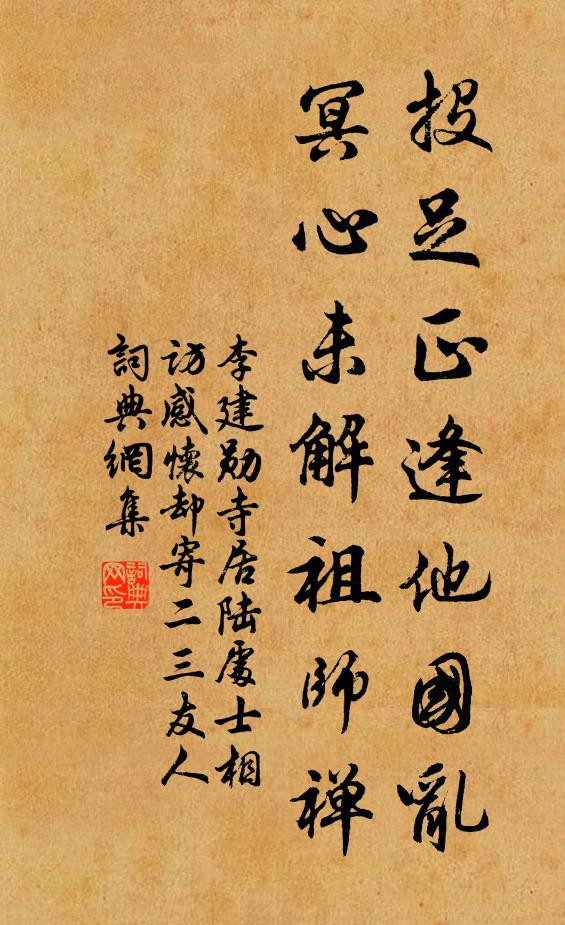 投足正逢他國亂
冥心未解祖師禅
李建勋寺居陆處士相
访感懷却寄二三友人
詞典網集
詞典
网印